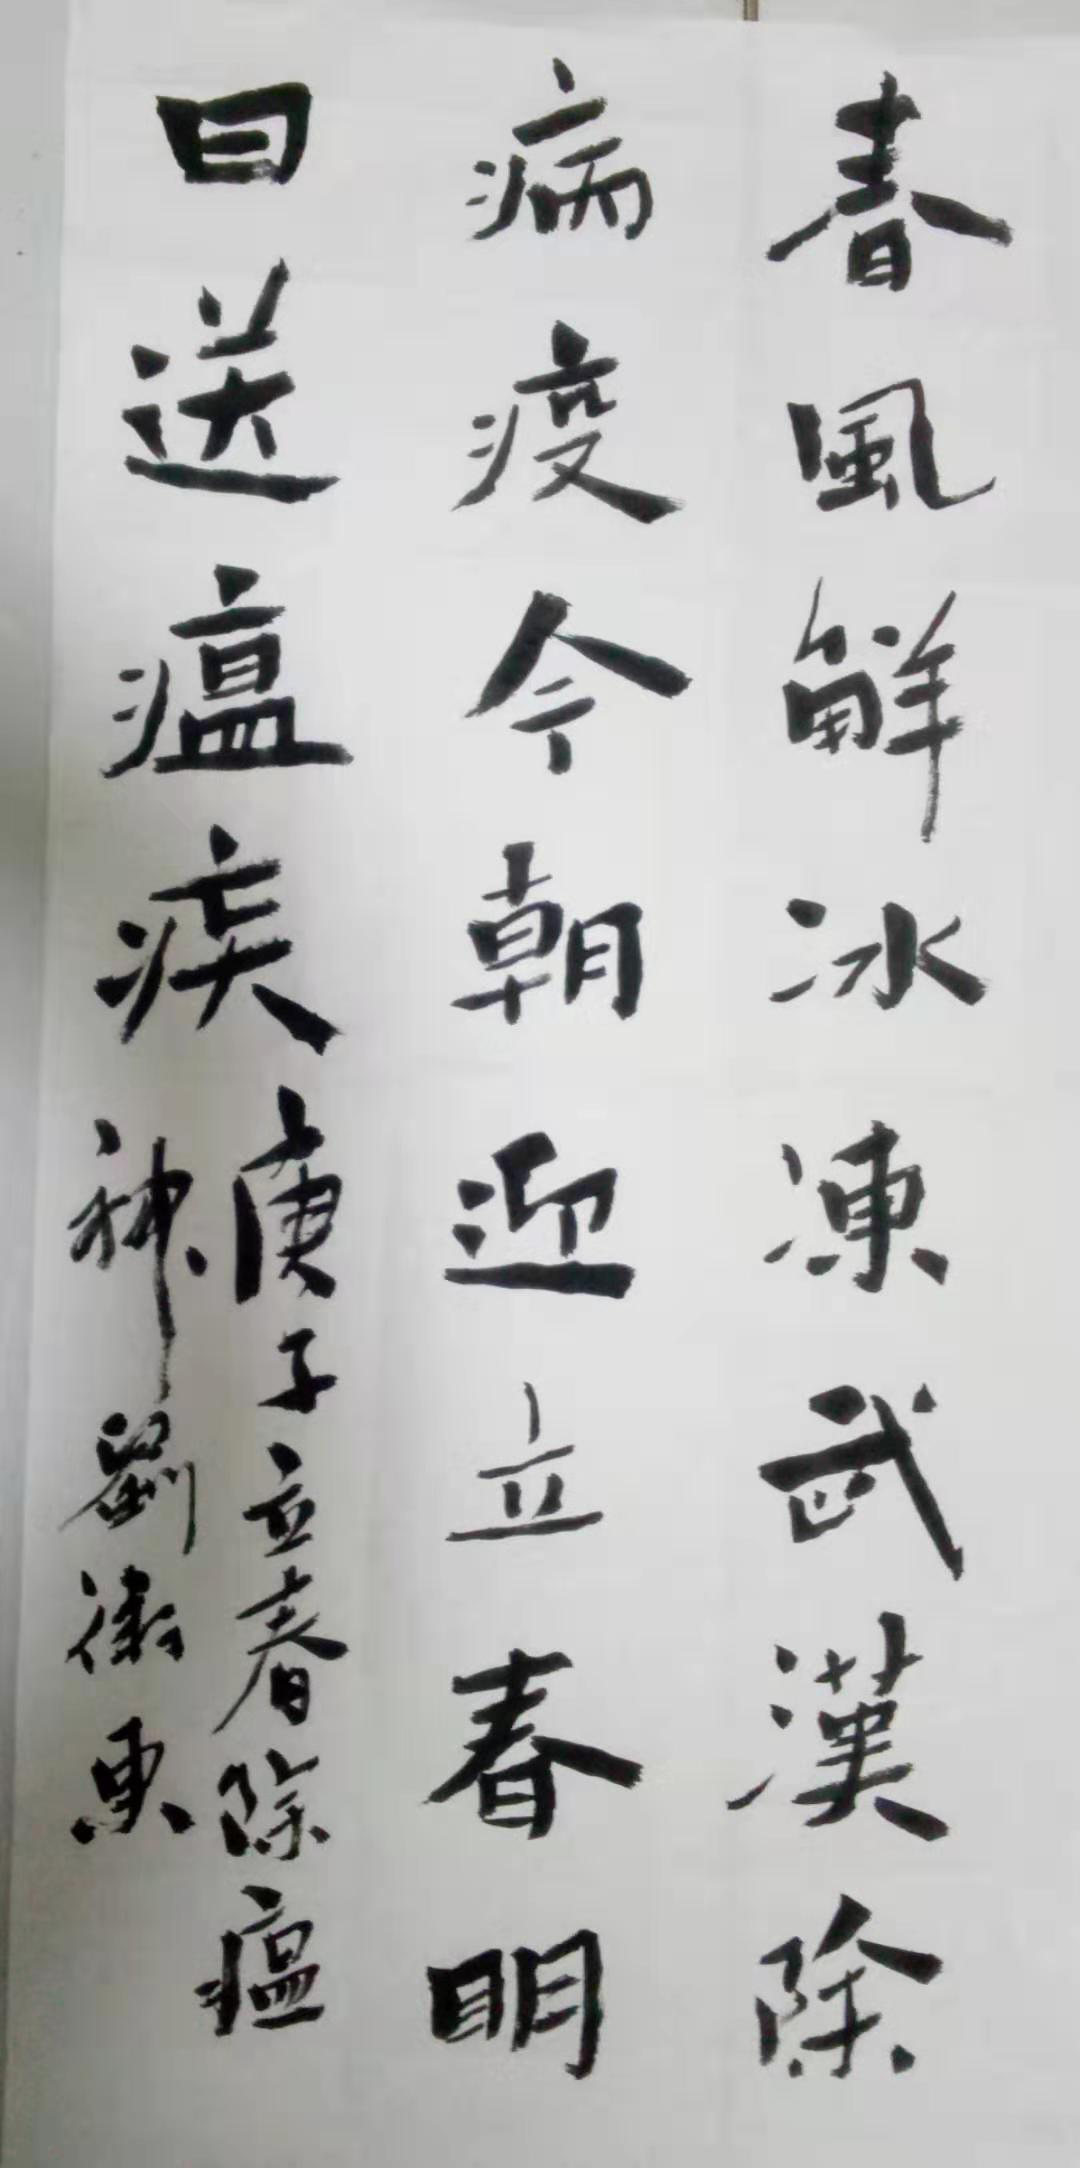 春風解冰凍武漢除
病疫今朝迎立春明
日送瘟疾
庚子立春除瘟
神劉衛東